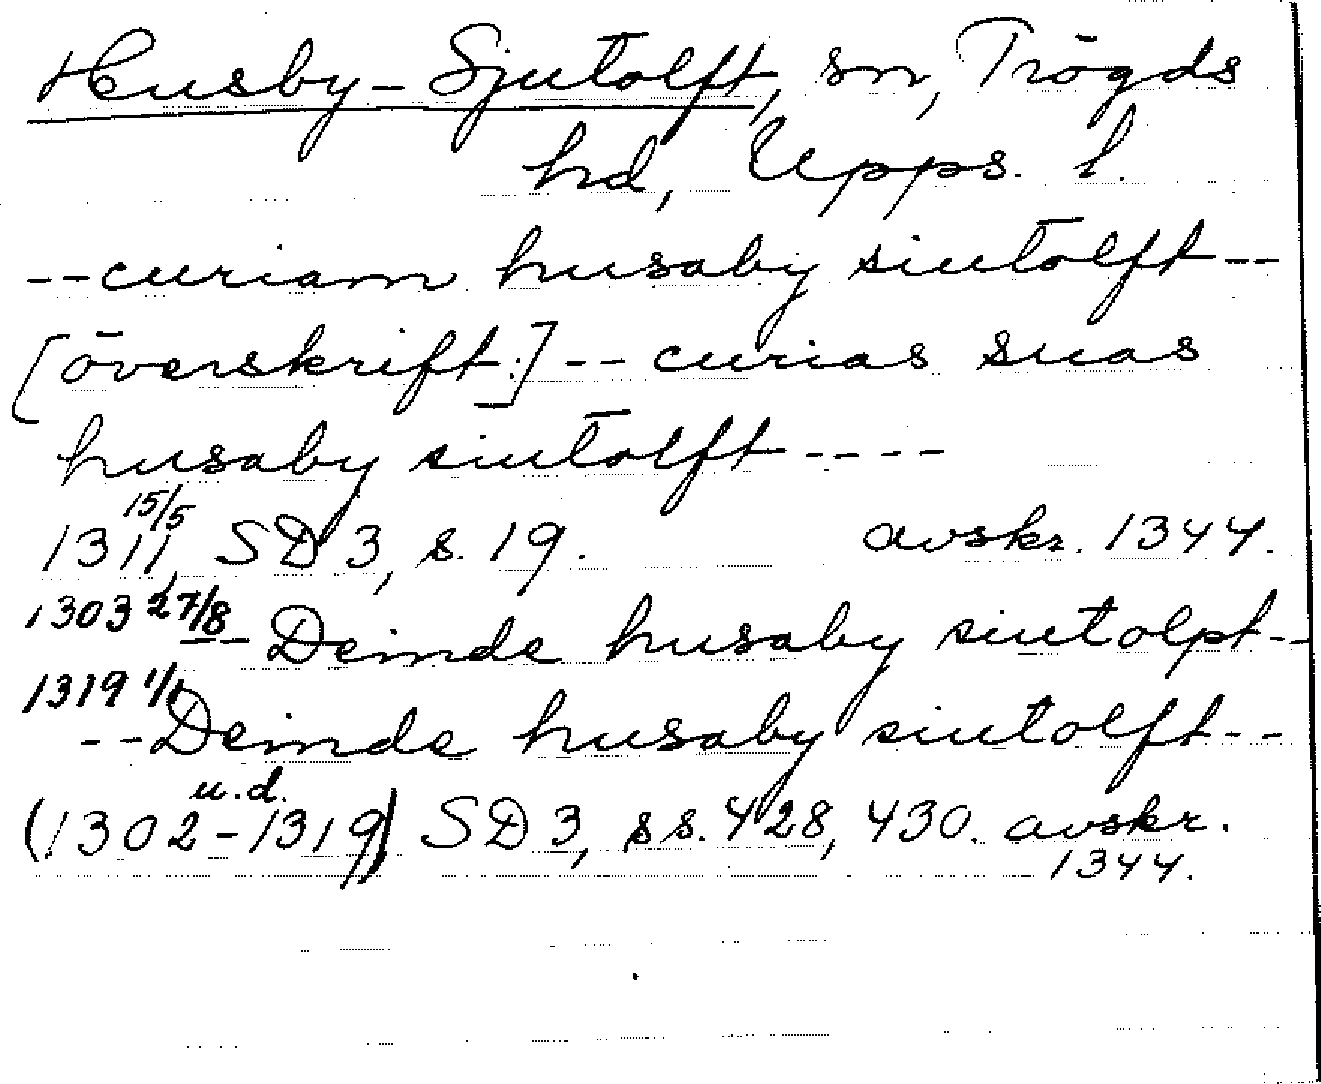 Husby-Sjutolft, sn, Trögds
hd, Upps. l.
--curiam husaby siutolft--
[överskrift:] -- curias suas
husaby siutolft ----
1311 15/5, SD 3, s. 19. avskr. 1344.
1303 27/8
-- Deinde husaby siutolpt--
1319 1/1
--Deinde husaby siutolft--
u.d.
(1302-1319) SD 3, ss. 428, 430. avskr.
1344.